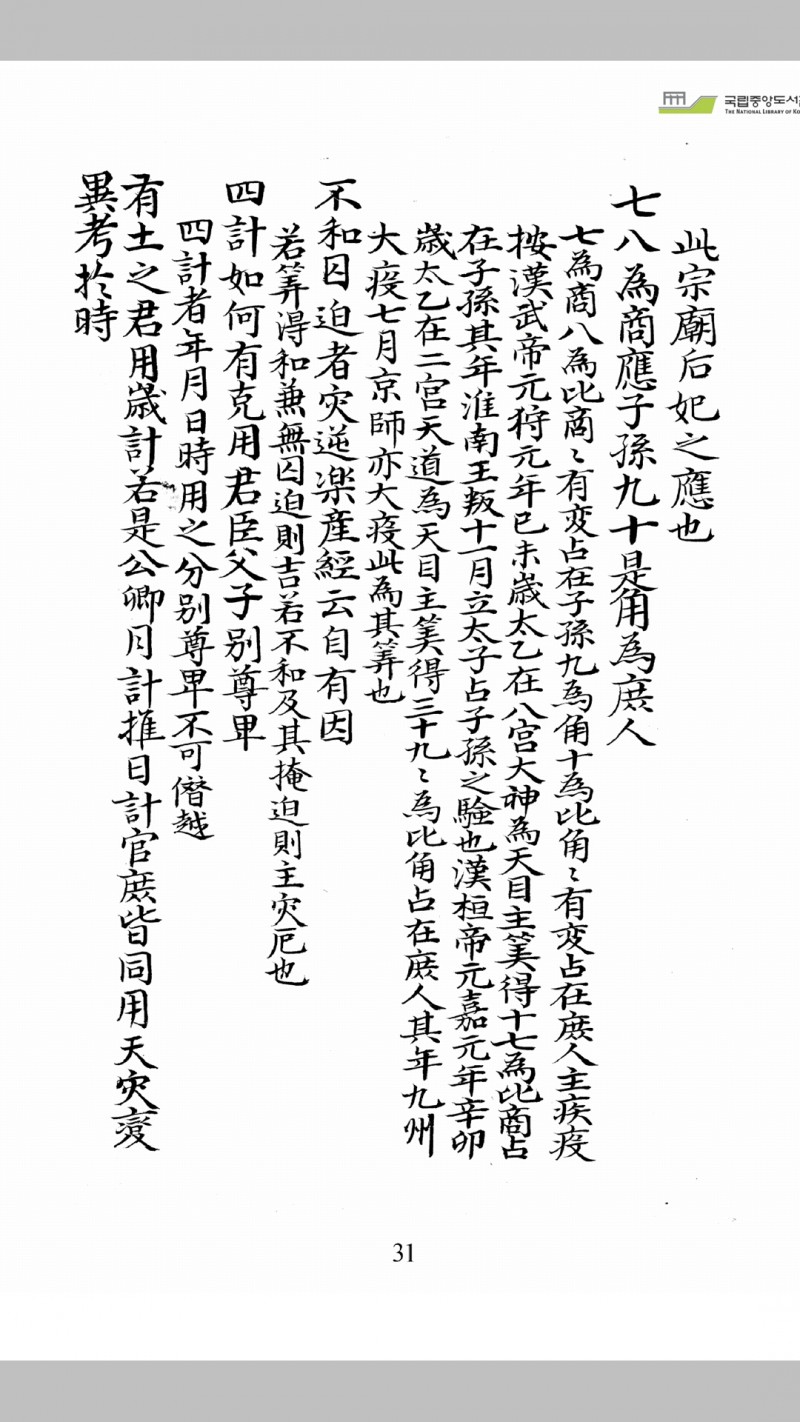 국립중앙도서
THE NATIONAL LIBRARY OF KO
此宗廟后妃之應也
七八為商應子孫九十是角為庶人
七為商八為比商〻有変占在子孫九為角十為比角〻有変占在庶人主疾疫
按漢武帝元狩元年己未歳太乙在八宮大神為天目主筭得十七為比商占
在子孫其年淮南王叛十一月立太子占子孫之驗也漢桓帝元嘉元年辛卯
歳太乙在二宮天道為天目主筭得三十九〻為比角占在庶人其年九州
大疫七月京師亦大疫此為其筭也
不和囚迫者灾逆楽産經云自有因
若筭得和兼無囚迫則吉若不和及其掩迫則主灾厄也
四計如何有克用君臣父子別尊卑
四計者年月日時用之分別尊卑不可僭越
有土之君用歳計若是公卿月計推日計官庶皆同用天灾变
異考扵時
31